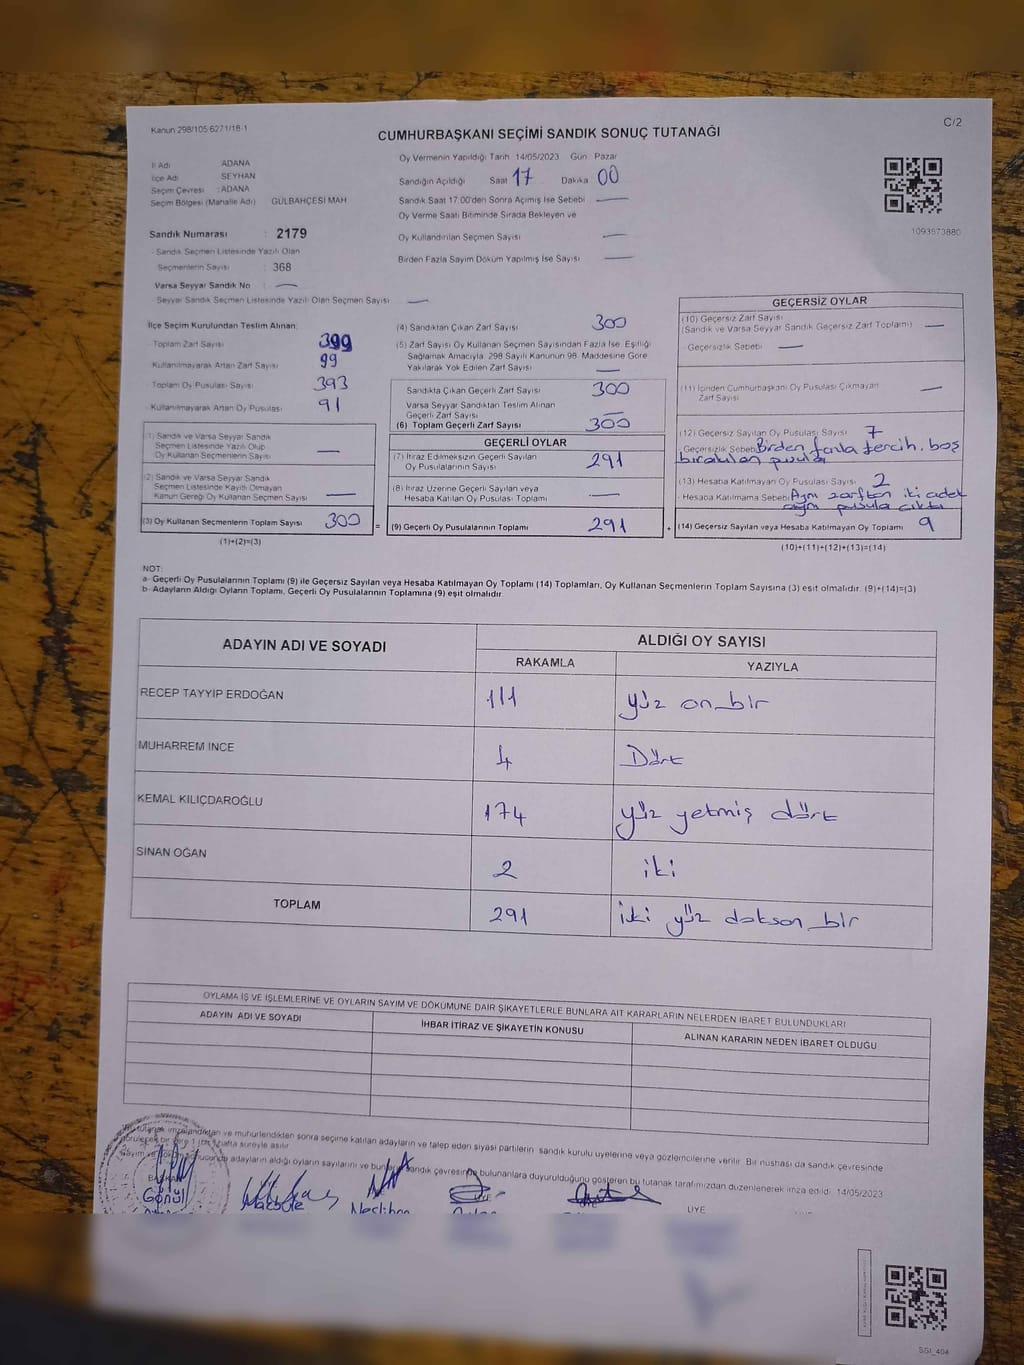 Kanun 298/105 6271/18-1
C/2
CUMHURBAŞKANI SEÇİMİ SANDIK SONUÇ TUTANAĞI
İl Adı ADANA
İlçe Adı SEYHAN
Seçim Çevresi : ADANA
Seçim Bölgesi (Mahalle Adı) GÜLBAHÇESİ MAH
Sandık Numarası : 2179
Sandık Seçmen Listesinde Yazılı Olan
Seçmenlerin Sayısı : 368
Varsa Seyyar Sandık No : —
Seyyar Sandık Seçmen Listesinde Yazılı Olan Seçmen Sayısı —
Oy Vermenin Yapıldığı Tarih 14/05/2023 Gün Pazar
Sandığın Açıldığı Saat 17 Dakika 00
Sandık Saat 17:00'den Sonra Açılmış İse Sebebi —
Oy Verme Saati Bitiminde Sırada Bekleyen ve
Oy Kullandırılan Seçmen Sayısı —
Birden Fazla Sayım Döküm Yapılmış İse Sayısı —
1093673880
İlçe Seçim Kurulundan Teslim Alınan:
Toplam Zarf Sayısı 399
Kullanılmayarak Artan Zarf Sayısı 99
Toplam Oy Pusulası Sayısı 393
Kullanılmayarak Artan Oy Pusulası 91
(1) Sandık ve Varsa Seyyar Sandık
Seçmen Listesinde Yazılı Olup
Oy Kullanan Seçmenlerin Sayısı —
(2) Sandık ve Varsa Seyyar
Sandık Seçmen Listesinde Kayıtlı Olmayan
Kanun Gereği Oy Kullanan Seçmen Sayısı —
(3) Oy Kullanan Seçmenlerin Toplam Sayısı 300
(1)+(2)=(3)
(4) Sandıktan Çıkan Zarf Sayısı 300
(5) Zarf Sayısı Oy Kullanan Seçmen Sayısından Fazla İse, Eşitliği
Sağlamak Amacıyla, 298 Sayılı Kanunun 98. Maddesine Göre
Yakılarak Yok Edilen Zarf Sayısı —
Sandıkta Çıkan Geçerli Zarf Sayısı 300
Varsa Seyyar Sandıktan Teslim Alınan
Geçerli Zarf Sayısı —
(6) Toplam Geçerli Zarf Sayısı 300
GEÇERLİ OYLAR
(7) İtiraz Edilmeksizin Geçerli Sayılan
Oy Pusulalarının Sayısı 291
(8) İtiraz Üzerine Geçerli Sayılan veya
Hesaba Katılan Oy Pusulası Toplamı —
= (9) Geçerli Oy Pusulalarının Toplamı 291
GEÇERSİZ OYLAR
(10) Geçersiz Zarf Sayısı
(Sandık ve Varsa Seyyar Sandık Geçersiz Zarf Toplamı) —
- Geçersizlik Sebebi —
(11) İçinden Cumhurbaşkanı Oy Pusulası Çıkmayan
Zarf Sayısı —
(12) Geçersiz Sayılan Oy Pusulası Sayısı 7
- Geçersizlik Sebebi Birden fazla tercih, boş
bırakılan pusula
(13) Hesaba Katılmayan Oy Pusulası Sayısı 2
- Hesaba Katılmama Sebebi Aynı zarftan iki adet
aynı pusula çıktı
+ (14) Geçersiz Sayılan veya Hesaba Katılmayan Oy Toplamı 9
(10)+(11)+(12)+(13)=(14)
NOT:
a- Geçerli Oy Pusulalarının Toplamı (9) ile Geçersiz Sayılan veya Hesaba Katılmayan Oy Toplamı (14) Toplamları, Oy Kullanan Seçmenlerin Toplam Sayısına (3) eşit olmalıdır. (9)+(14)=(3)
b- Adayların Aldığı Oyların Toplamı, Geçerli Oy Pusulalarının Toplamına (9) eşit olmalıdır.
ADAYIN ADI VE SOYADI
ALDIĞI OY SAYISI
RAKAMLA YAZIYLA
RECEP TAYYİP ERDOĞAN 111 yüz on bir
MUHARREM İNCE 4 Dört
KEMAL KILIÇDAROĞLU 174 yüz yetmiş dört
SİNAN OĞAN 2 iki
TOPLAM 291 iki yüz doksan bir
OYLAMA İŞ VE İŞLEMLERİNE VE OYLARIN SAYIM VE DÖKÜMÜNE DAİR ŞİKAYETLERLE BUNLARA AİT KARARLARIN NELERDEN İBARET BULUNDUKLARI
ADAYIN ADI VE SOYADI
İHBAR İTİRAZ VE ŞİKAYETİN KONUSU
ALINAN KARARIN NEDEN İBARET OLDUĞU
tutanak imzalandıktan ve mühürlendikten sonra seçime katılan adayların ve talep eden siyasi partilerin sandık kurulu üyelerine veya gözlemcilerine verilir. Bir nüshası da sandık çevresinde
görülecek bir yere 1 (bir) hafta süreyle asılır.
Sayım ve döküm sonucunda adayların aldığı oyların sayılarını ve bunların sandık çevresinde bulunanlara duyurulduğunu gösteren bu tutanak tarafımızdan düzenlenerek imza edildi. 14/05/2023
BAŞKAN
Gönül
Neslihan
ÜYE
SGI_404